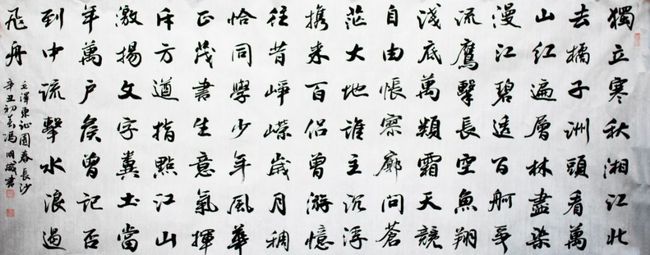 獨立寒秋湘江北
去橘子洲頭看萬
山紅遍層林盡染
漫江碧透百舸爭
流鷹擊長空魚翔
淺底萬類霜天競
自由悵寥廓問蒼
茫大地誰主沉浮
携来百侣曾游憶
往昔崢嶸歲月稠
恰同學少年風華
正茂書生意氣揮
斥方遒指點江山
激揚文字糞土當
年萬户侯曾記否
到中流擊水浪遏
飛舟
毛澤東沁園春長沙
辛丑初馮明書